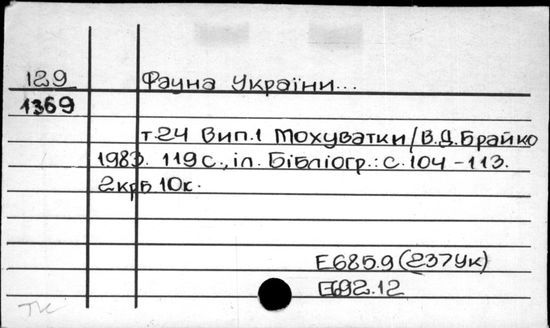 129 Фауна України...
1369
т.24 Вип.1 Мохуватки/В.Д.Брайко
1983. 119 с., іл. Бібліогр.: с. 104-113.
2крб 10к.
Е685.9(237Ук)
Е692.12